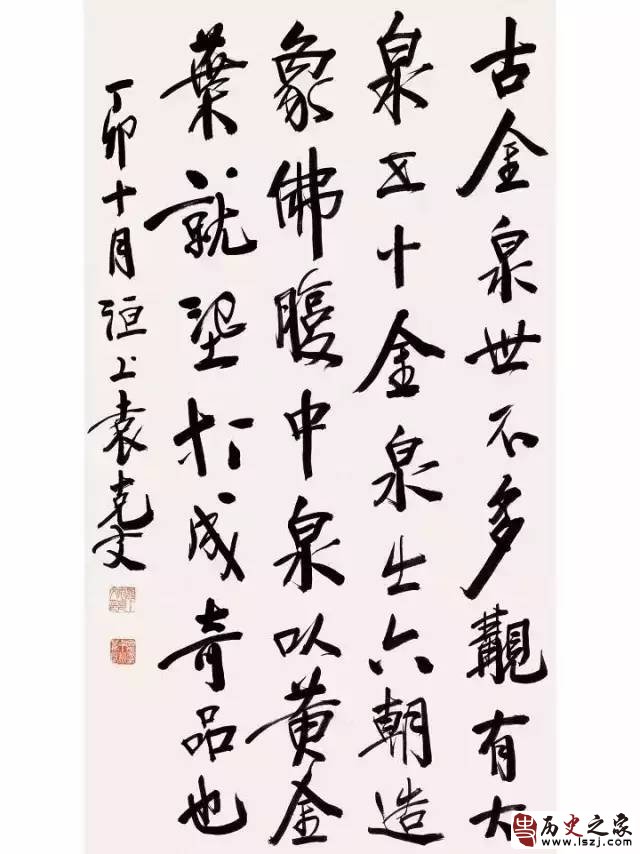 古金泉世不多覯有大
泉五十金泉出六朝造
象佛腹中泉以黄金
葉就於成奇品也
丁卯十月洹上袁克文
历史之家
www.lszj.com